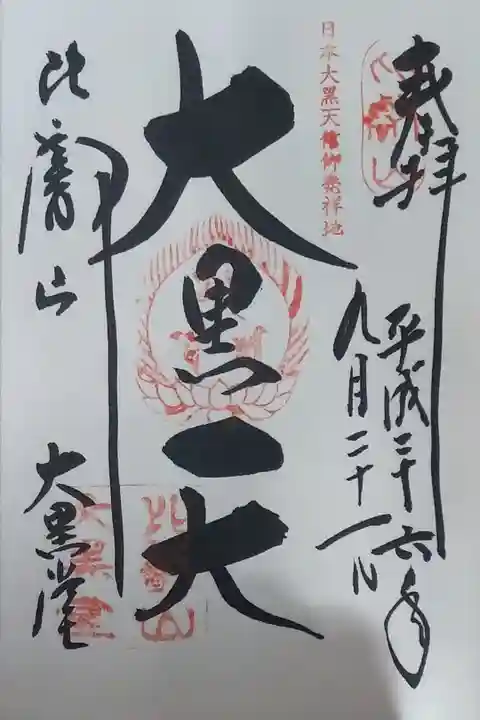 奉拝
平成二十六年
九月二十一日
日本大黒天信仰発祥地
大黒天
比叡山
大黒堂
比叡山
大黒堂